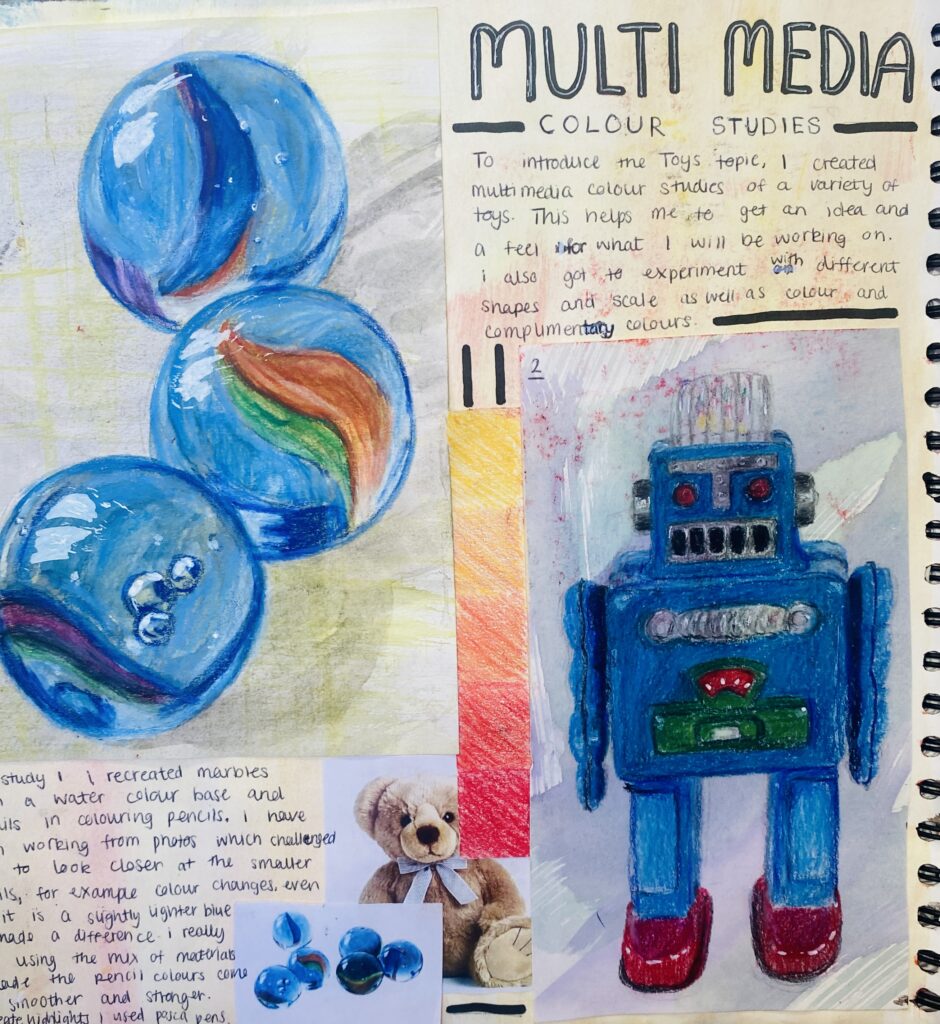 MULTI MEDIA
COLOUR STUDIES
To introduce the Toys topic, I created
multimedia colour studies of a variety of
toys. This helps me to get an idea and
a feel for what I will be working on.
i also got to experiment with different
shapes and scale as well as colour and
complimentary colours.
2
study 1 i recreated marbles
a water colour base and
ils in colouring pencils. i have
working from photos which challenged
to look closer at the smaller
ils, for example colour changes, even
it is a slightly lighter blue
made a difference. i really
using the mix of materials
ade the pencil colours come
smoother and stronger.
eate highlights i used posca pens.